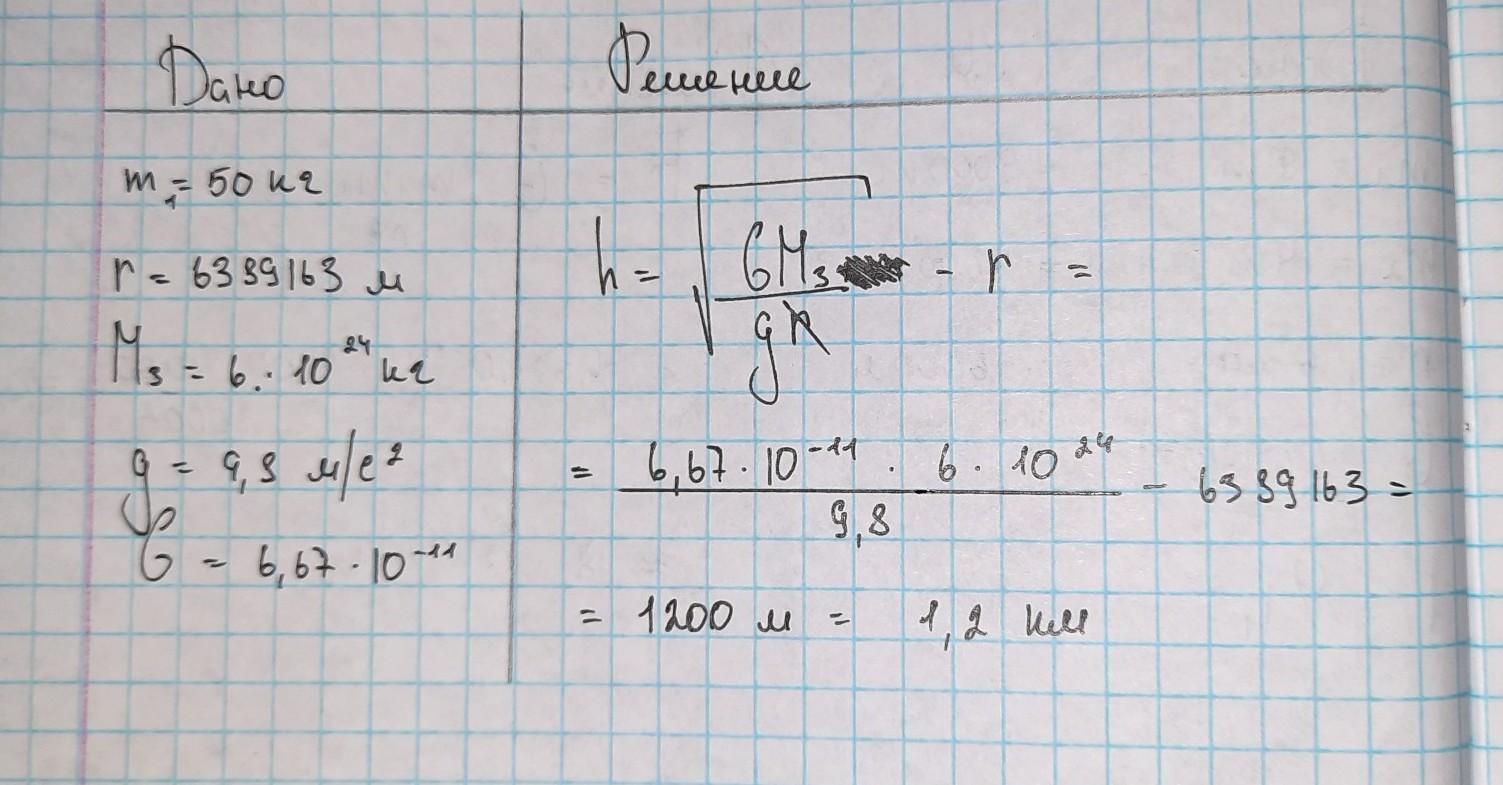 Дано Решение
m₁ = 50 кг
r = 6389163 м
M₃ = 6 · 10²⁴ кг
g = 9,8 м/с²
G = 6,67 · 10⁻¹¹
h = √(GM₃ / g) - r =
= (6,67 · 10⁻¹¹ · 6 · 10²⁴) / 9,8 - 6389163 =
= 1200 м = 1,2 км